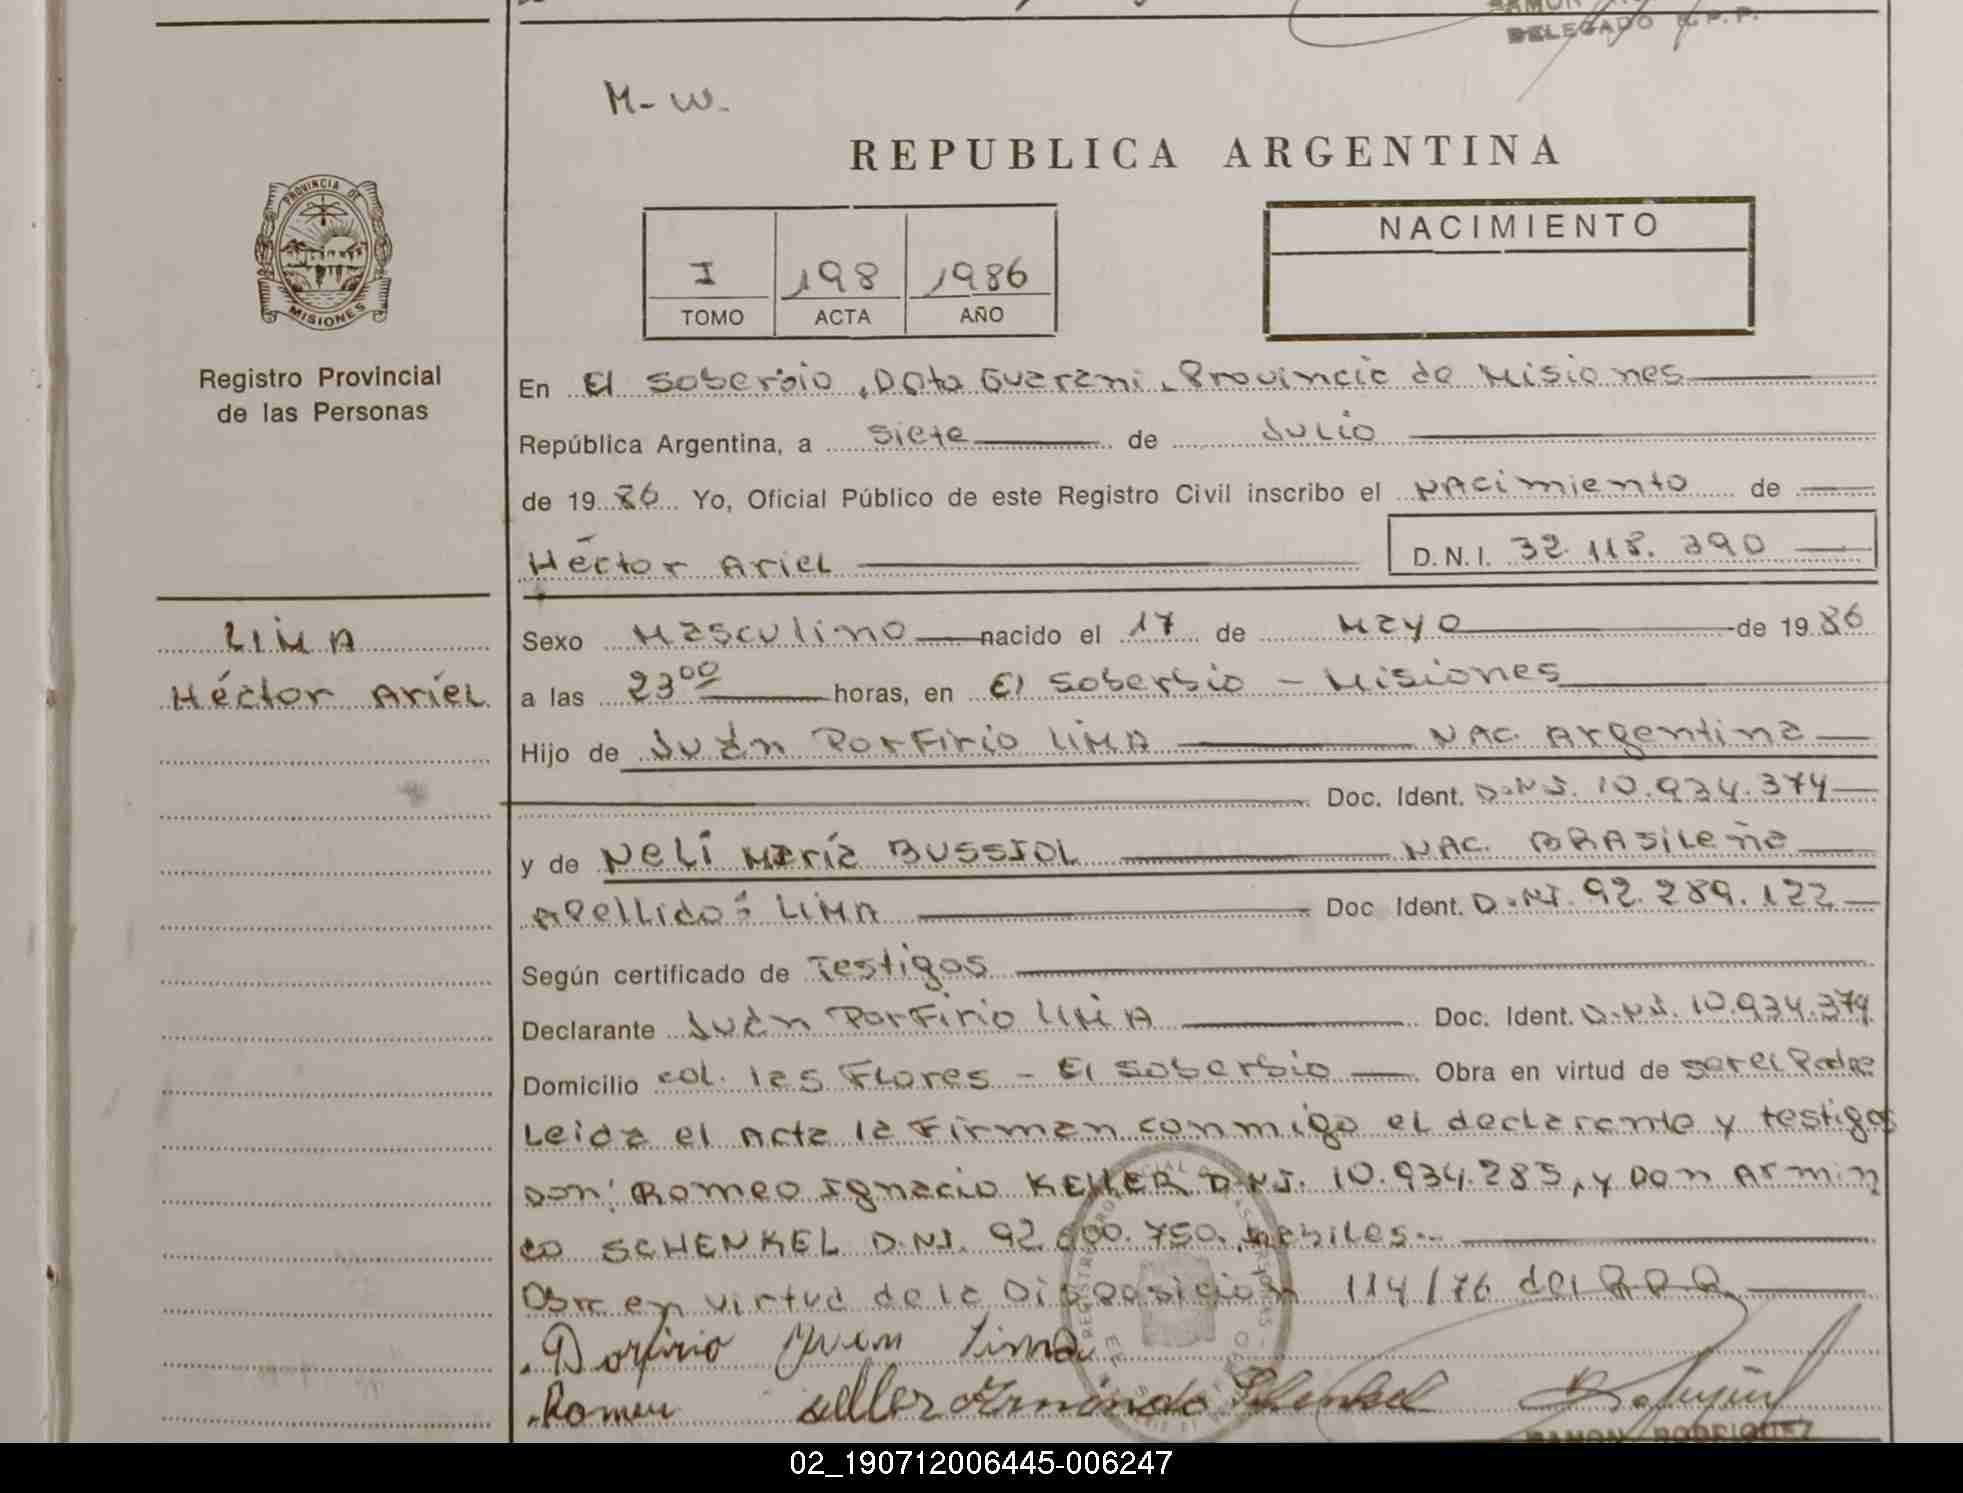 DELEGADO R.P.P.
M-W.
REPUBLICA ARGENTINA
NACIMIENTO
I 198 1986
TOMO ACTA AÑO
PROVINCIA DE
MISIONES
Registro Provincial
de las Personas
LIMA
Héctor Ariel
En El Soberbio, Dpto Guarani, Provincia de Misiones
República Argentina, a siete de Julio
de 1986 Yo, Oficial Público de este Registro Civil inscribo el NACimiento de
Héctor Ariel D.N.I. 32.118.390
Sexo Masculino nacido el 17 de Mayo de 1986
a las 23⁰⁰ horas, en El Soberbio - Misiones
Hijo de Juan Porfirio LIMA NAC. Argentina
Doc. Ident. D.N.I. 10.934.374
y de Neli María BUSSIOL NAC. BRASileña
Apellido: LIMA Doc Ident. D.N.I. 92.289.122
Según certificado de Testigos
Declarante Juan Porfirio LIMA Doc. Ident. D.N.I. 10.934.374
Domicilio col. las Flores - El Soberbio Obra en virtud de ser el Padre
Leida el Acta la Firman conmigo el declarante y testigos
Don: Romeo Ignacio KELLER D.N.I. 10.934.283, y Don Armin
do SCHENKEL D.N.I. 92.600.750. habiles.-
Obra en virtud de la Disposición 114/76 del R.P.P.
Porfirio Juan Lima
Romeu Keller Armindo Schenkel
RAMON RODRIGUEZ
02_190712006445-006247